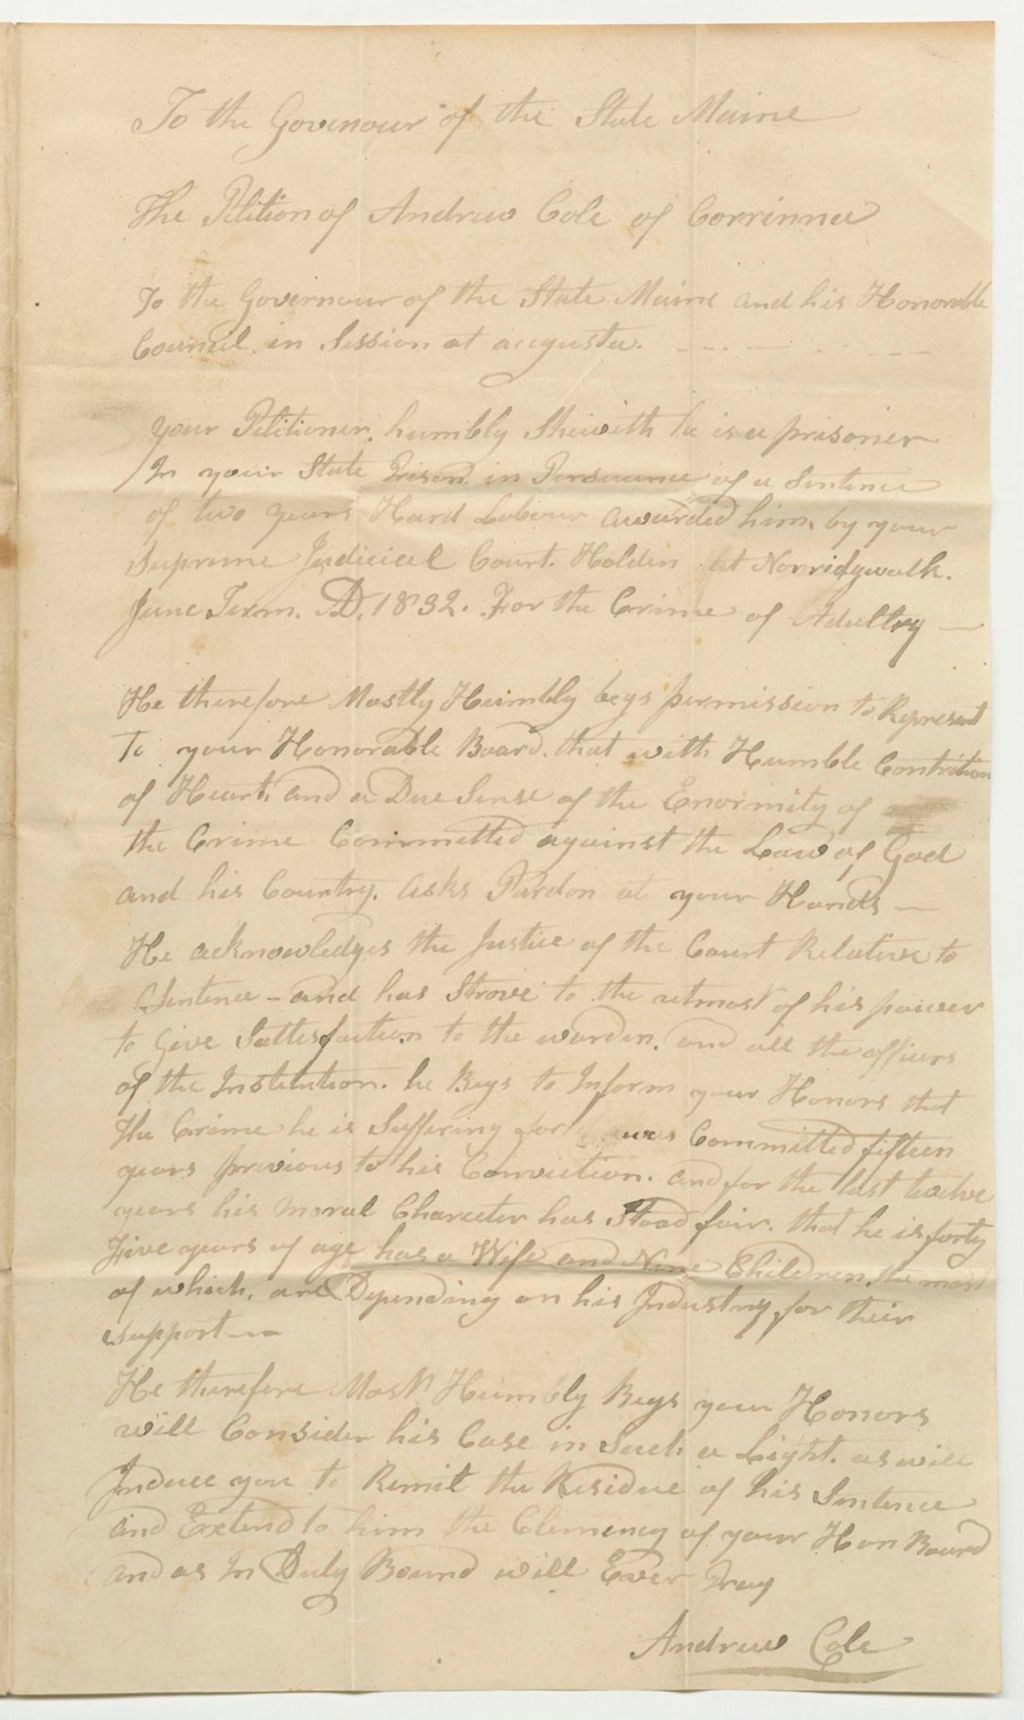 To the Govenour of the State Maine
The Petition of Andrew Cole of Corrinna
To the Governour of the State Maine and his Honorable
Council in Session at augusta.
your Petitioner, humbly Sheweth he is a prisoner
In your State Prison in Persuance of a Sentence
of two years Hard Labour awarded him by your
Supreme Judicial Court. Holden at Norridgwalk.
June Term. AD, 1832. For the Crime of Adultry —
He therefore Mostly Humbly begs permission to Represent
To your Honorable Board. that with Humble Contrition
of Heart, and a Due Sense of the Enormity of
the Crime Committed against the Law of God
and his Country. asks Pardon at your Hands —
He acknowledges the Justice of the Court Relative to
Sentence — and has Strove to the utmost of his power
to Give Sattisfaction to the warden. and all the officers
of the Institution. he Begs to Inform your Honors that
the Crime he is Suffering for was Committed fifteen
years previous to his Conviction. and for the last twelve
years his moral Charecter has Stood fair. that he is forty
Five years of age has a Wife and Nine Children. the most
of which, are Depending on his Industry for their
Support —
He therefore Most Humbly Begs your Honors
will Consider his Case in Such a Light. as will
Induce you to Remit the Residue of his Sentence
and Extend to him the Clemency of your Hon Board
and as In Duty Bound will Ever Pray
Andrew Cole